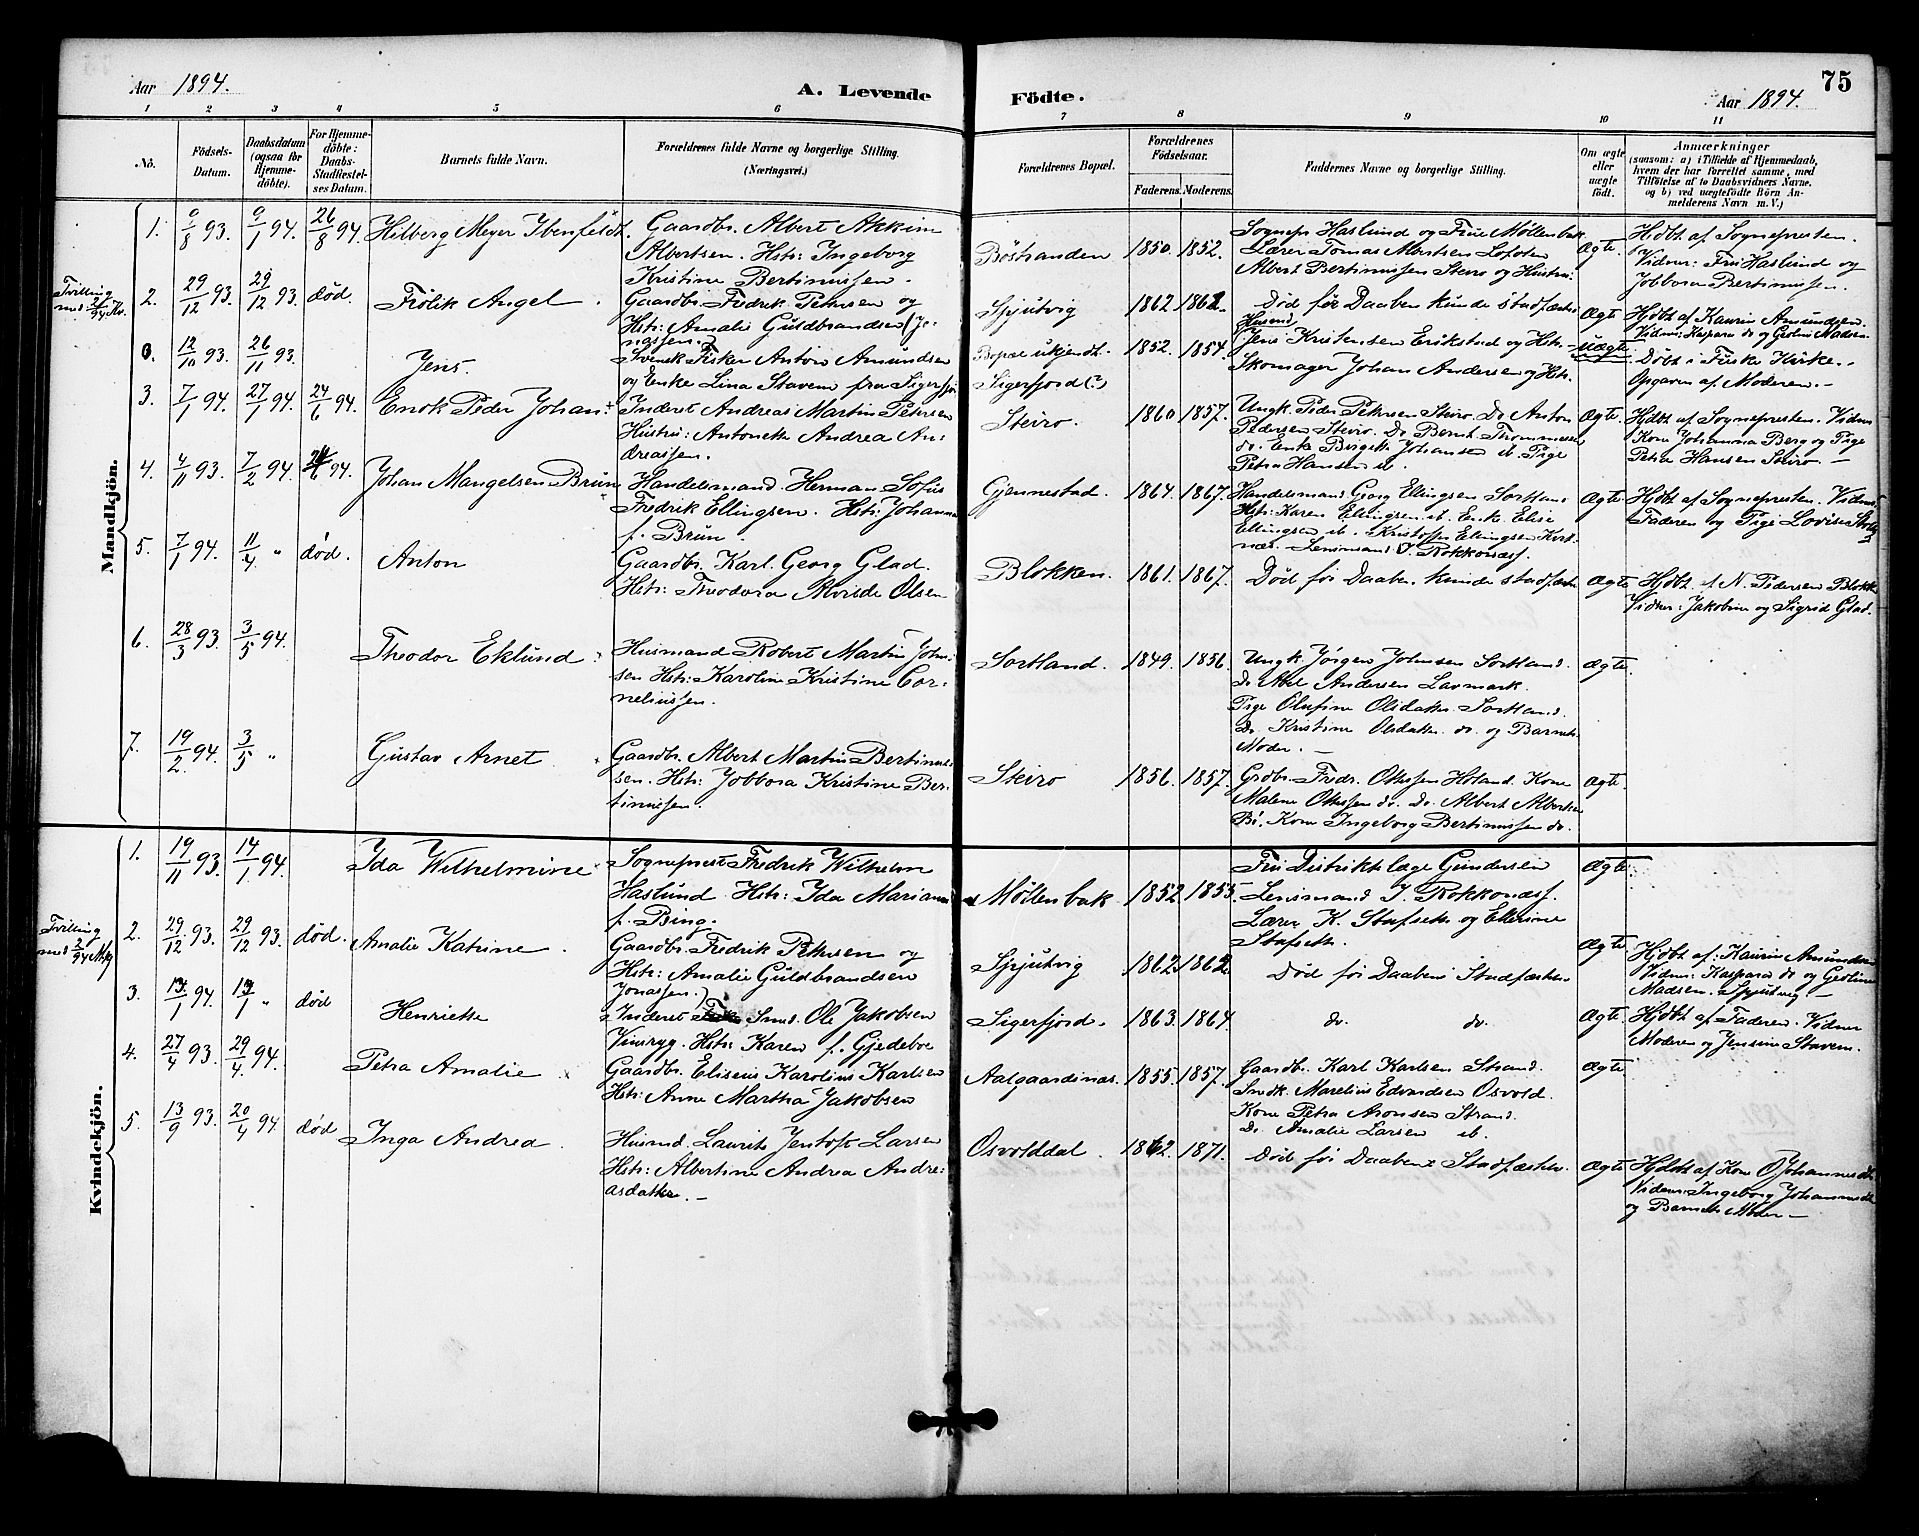 75
Aar 1894.
A. Levende
Födte.
Aar 1894.
1 2 3 4 5 6 7 8 9 10 11
No.
Födsels-Datum.
Daabsdatum (ogsaa for Hjemme-döbte).
For Hjemme-döbte: Daabs-Stadfæstel-ses Datum.
Barnets fulde Navn.
Forældrenes fulde Navne og borgerlige Stilling.
(Næringsvei.)
Forældrenes Bopæl.
Forældrenes Födselsaar.
Faderens. Moderens.
Faddernes Navne og borgerlige Stilling.
Om ægte eller uægte födt.
Anmærkninger
(saasom: a) i Tilfælde af Hjemmedaab,
hvem der har forrettet samme, med
Tilföielse af to Daabsvidners Navne,
og b) ved uægtefödte Börn An-
melderens Navn m. V.)
Mandkjön.
1. 9/8 93. 9/1 94. 26/8 94. Hilberg Meyer Ibenfeldt.
Gaardbr. Albert Akkim
Albertsen. Hstr: Ingeborg
Kristine Bertinussen.
Böstranden 1850. 1852.
Sognepr. Haslund og Frue Møllenbak
Lærer Tomas Martsen Lofoten
Albert Bertinussen Steiro og Hustru:
Ægte.
Hjdbt af Sognepresten.
Vidner: Fru Haslund og
Jobbora Bertinussen.
Tvilling med 2/94 Kv.
2. 29/12 93. 29/12 93. død. Frølik Angel.
Gaardbr. Fredrik Petersen og
Hstr: Amalie Guldbrandsen (Jo-
nassen.)
Spjutvig 1862 1862.
Død før Daaben kunde stadfæstes
Ægte
Hjdbt af Kaurin Amundsen.
Vidner: Kaspara do og Gerline Madsen
0. 12/10 93. 26/11 93. Jens.
Svensk Fisker Anton Amundsen
og Enke Lina Stavem fra Sigerfjor
Bopæl ukjendt.
Sigerfjord (?)
1852. 1854.
Husmd. Jens Kristensen Erikstad og Hstr.
Skomager Johan Andersen og Hstr.
uægte.
Døbt i Fuske Kirke.
Opgaven af Moderen.
3. 7/1 94. 27/1 94. 24/6 94. Enok Peder Johan
Inderst Andreas Martin Petersen
Hustru: Antonette Andrea An-
dreassen.
Steiro. 1860 1857.
Ungk. Peder Petersen Steiro. Do Anton
Pedersen Steiro. Do Bernt Thommesen
do. Enke Birgitte Johansen ib. Pige
Petra Hansen ib.
Ægte.
Hjdbt af Sognepresten. Vidner
Kone Johanna Berg og Pige
Petra Hansen Steiro
4. 4/11 93. 7/2 94. 24/6 94. Johan Mangelsen Brun
Handelsmand Herman Sofus
Fredrik Ellingsen. Hstr: Johanna
f. Brun.
Gjennestad. 1864. 1867.
Handelsmand Georg Ellingsen Sortland
Hstr: Karen Ellingsen ib. Enke Elise
Ellingsen ib. Kristoffer Ellingsen
Lensmand J. Rokkonæsf.
Ægte.
Hjdbt af Sognepresten. Vidner
Faderen og Pige Lovise
5. 7/1 94. 11/4 " død. Anton
Gaardbr. Karl Georg Glad.
Hstr: Theodora Alvilde Olsen
Blokken. 1861. 1867.
Død før Daaben kunde stadfæstes
Ægte
Hjdbt af N. Pedersen Blokk
Vidner: Jakobine og Sigrid Glad.
6. 28/3 93. 3/5 94. Theodor Eklund
Husmand Robert Martin John-
sen Hstr: Karoline Kristine Cor-
neliussen.
Sortland. 1849. 1856.
Ungk. Jørgen Johnsen Sortland.
Do Abel Andersen Lavmark.
Pige Olufine Olsdatter Sortland.
Do. Kristine Olsdatter do. og Barnets
Moder.
Ægte.
7. 19/2 94. 3/5 " Gustav Arnet
Gaardbr. Albert Martin Bertinus-
sen. Hstr: Jobbora Kristine Ber-
tinussen.
Steiro 1856. 1857.
Grdbr. Fredr. Ottesen Holand. Kone
Malene Ottesen do. Do. Albert Albertsen
Bö. Kone Ingeborg Bertinussen do.
Ægte.
Kvindekjön.
1. 19/11 93. 14/1 94. Ida Wilhelmine
Sogneprest Fredrik Wilhelm
Haslund. Hstr: Ida Mariane
f. Bing.
Møllenbak 1852 1855.
Fru Distriktslæge Gundersen
Lensmand J. Rokkonæsf.
Lærer K. Stafseth og Ellerine
Stafseth.
Ægte.
Tvilling med 2/94 Mkj
2. 29/12 93. 29/12 93. død. Amalie Katrine.
Gaardbr. Fredrik Petersen og
Hstr: Amalie Guldbrandsen
Jonassen.)
Spjutvig 1862 1862
Død før Daabens Stadfæstelse
Ægte
Hjdbt af: Kaurin Amundsen
Vidner: Kaspara do og Geoline
Madsen. Spjutvig.
3. 13/1 94. 13/1 " død Henriette
Inderst Smed Ole Jakobsen
Vinryg. Hstr: Karen f. Gjedeboe
Sigerfjord. 1863. 1864
do. do.
Ægte.
Hjdbt af Faderen. Vidner
Moderen og Jensine Stavem.
4. 27/4 93. 29/4 94. Petra Amalie
Gaardbr. Eliseus Karolius Karlsen
Hstr: Anne Martha Jakobsen
Aalgaardsnæs. 1855. 1857.
Gaardb. Karl Karlsen Strand.
Smdk. Marelius Edvardsen Osvold.
Kone Petra Aronsen Strand.
Do. Amalie Larsen ib.
Ægte
5. 13/9 93. 20/4 94. død Inga Andrea.
Husmd. Laurits Jentoft Larsen
Hstr: Albertine Andrea Andre-
asdatter.
Osvolddal. 1862. 1871.
Død før Daabens Stadfæstelse.
Ægte
Hjdbt af Kone O Johannesdt.
Vidner: Ingeborg Johannesdt
og Barnets Moder